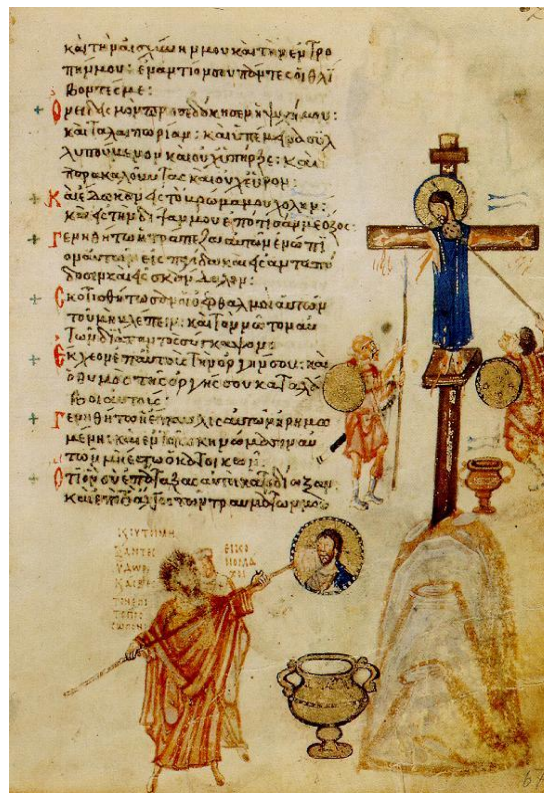 καὶ τὴν αἰσχύνην μου καὶ τὴν ἐντρο
πήν μου: ἐναντίον σου πάντες οἱ θλί
βοντές με:
Ὀνειδισμὸν προσεδόκησεν ἡ ψυχή μου:
καὶ ταλαιπωρίαν: καὶ ὑπέμεινα συλ
λυπούμενον καὶ οὐχ ὑπῆρξε: καὶ
παρακαλοῦντας καὶ οὐχ εὗρον:
Καὶ ἔδωκαν εἰς τὸ βρῶμα μου χολήν:
καὶ εἰς τὴν δίψαν μου ἐπότισάν με ὄξος:
Γενηθήτω ἡ τράπεζα αὐτῶν ἐνώπι
ον αὐτῶν εἰς παγίδα καὶ εἰς ἀνταπό
δοσιν καὶ εἰς σκάνδαλον:
Σκοτισθήτωσαν οἱ ὀφθαλμοὶ αὐτῶν
τοῦ μὴ βλέπειν: καὶ τὸν νῶτον αὐ
τῶν διὰ παντὸς σύγκαμψον:
Ἔκχεον ἐπ αὐτοὺς τὴν ὀργήν σου: καὶ
ὁ θυμὸς τῆς ὀργῆς σου καταλά
βοι αὐτούς:
Γενηθήτω ἡ ἔπαυλις αὐτῶν ἠρημω
μένη: καὶ ἐν τοῖς σκηνώμασιν αὐ
τῶν μὴ ἔστω ὁ κατοικῶν:
Ὅτι ὃν σὺ ἐπάταξας αὐτοὶ κατεδίωξαν
καὶ ἐπὶ τὸ ἄλγος τῶν τραυμάτων μου
ΞΑΝΤΕΣ
ΥΔΩΡ
ΕΙΚΟ
ΝΟΜΑ
ΧΟΙ
67